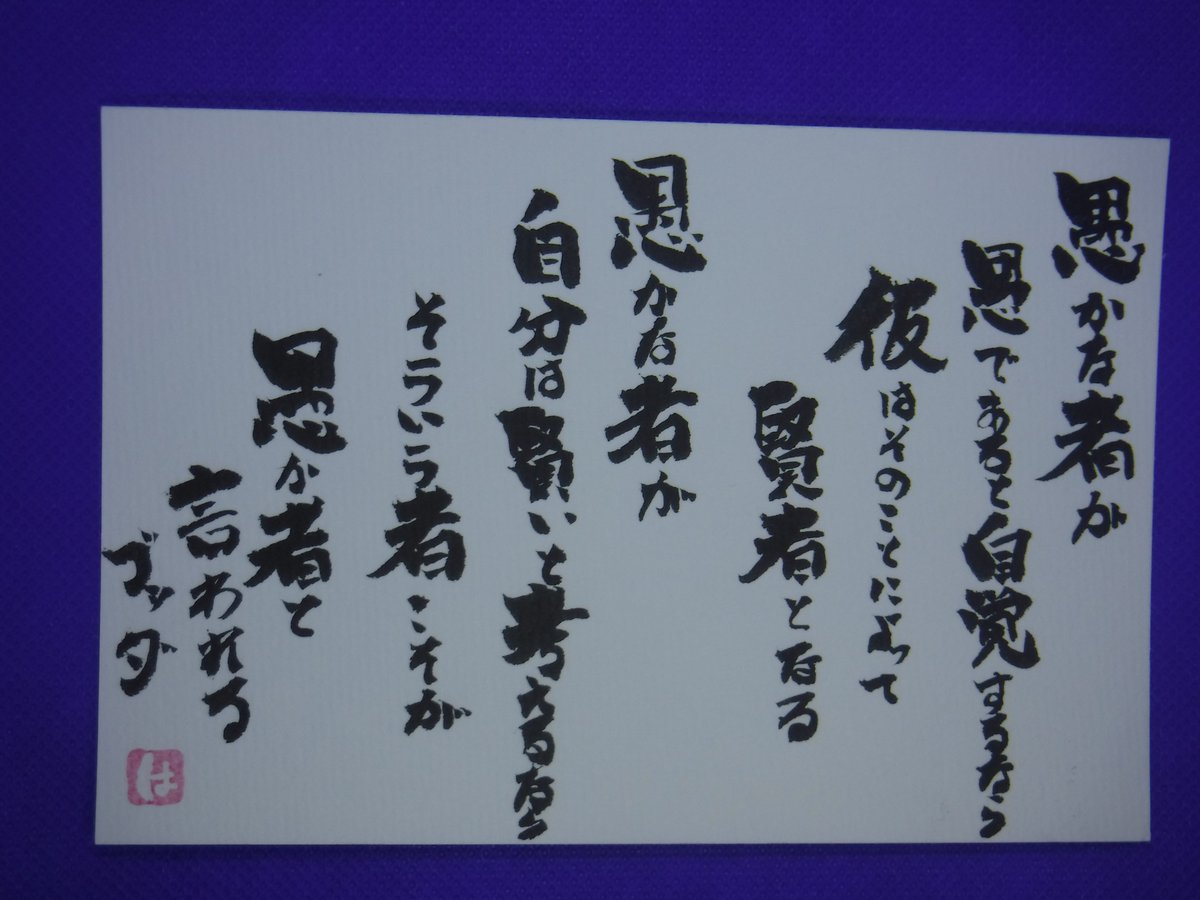 愚かな者が
愚であると自覚するなら
彼はそのことによって
賢者となる
愚かな者が
自分は賢いと考えるなら
そういう者こそが
愚か者と
言われる
ブッダ
は